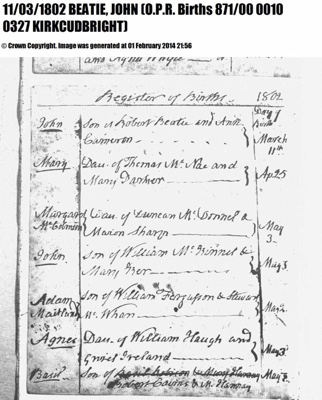 11/03/1802 BEATIE, JOHN (O.P.R. Births 871/00 0010
0327 KIRKCUDBRIGHT)
© Crown Copyright. Image was generated at 01 February 2014 21:56
and Agnes Whyte
Register of Births 1802
Day of Birth
John Son of Robert Beatie and Ann
Cameron March
11th
Mary Dau. of Thomas McNae and
Mary Parker Ap 25
Margaret Dau. of Duncan McConnel &
McCormick Marion Sharp May
3
John Son of William McKinnel &
Mary Ker May 3
Adam Son of William Fergusson & Stewart
Maitland McWhan May 2
Agnes Dau. of William Haugh and
Ireland May 3
Basil Son of & Mary Hannay May 8
Robert Cairns & M. Hannay